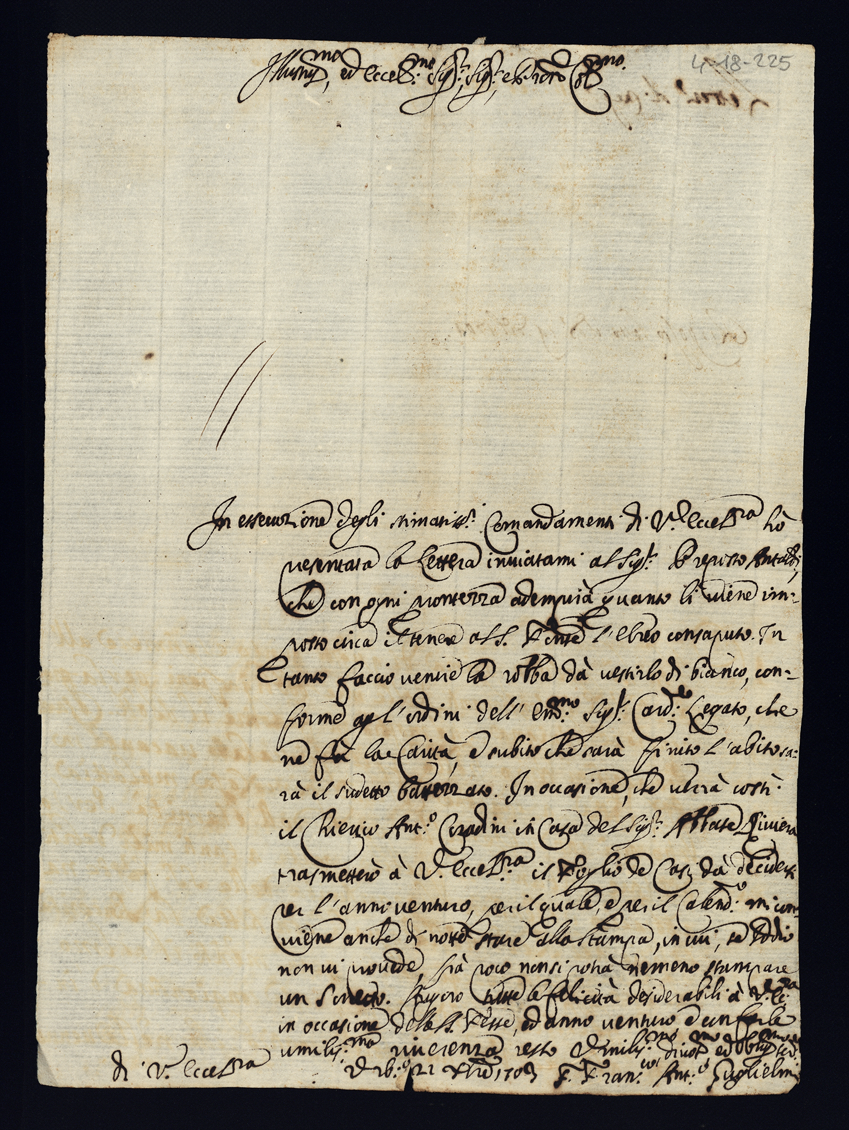 4-18-225
Illustris.mo, ed Eccell.mo Sig.r, Sig.r, e Pron Col.mo
In essecuzione degli stimatiss.i Comandamenti di V.ra Ecce.ra hò
presentata la lettera inviatami al Sig.r Preposto Antaldi,
che con ogni prontezza adempirà quanto li viene im-
posto circa il tenere al S. Fonte l'Ebreo consaputo. In
tanto faccio venire la robba dà vestirlo di bianco, con-
forme agl'ordini dell'Em.mo Sig.r Card.le Legato, che
ne fà la Carità, e subito che sarà finito l'abito sa-
rà il sudetto battezzato. In occasione, che verrà costì
il Chierico Ant.o Coradini in Casa del Sig.r Abbate Riviera
trasmetterò à V. Ecce.ra il Foglio de Casi dà decidersi
per l'anno venturo, per il quale, e per il Calend.o mi con-
viene anche di notte stare alla stampa, in cui, se Iddio
non vi provede, frà poco non si potrà nemeno stampare
un Sonetto. Auguro tutte le felicità desiderabili à V. Ecc.
in occasione delle S. Feste, ed anno venturo, e con farle
umilis.ma riverenza resto
di V. Ecce.ra
Urb.o 22 Xbre 1703
F. Fran.co Ant.o Guglielmi